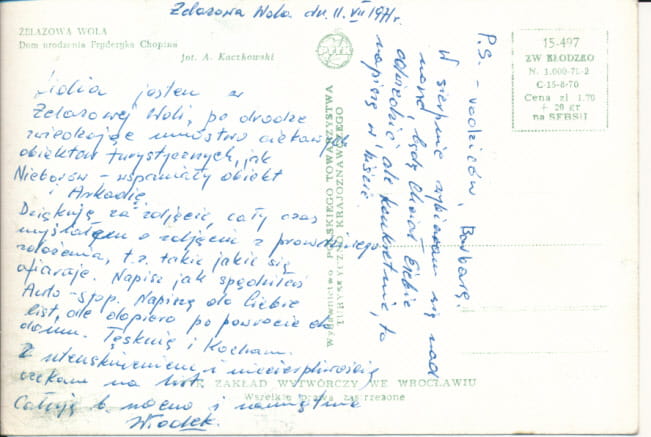 Żelazowa Wola dn. 11. VII 1971r.
ŻELAZOWA WOLA
Dom urodzenia Fryderyka Chopina
fot. A. Kaczkowski
Lidia jestem w
Żelazowej Woli, po drodze
zwiedzając mnóstwo ciekawych
obiektów turystycznych, jak
Nieborów – wspaniały obiekt
i Arkadię.
Dziękuję za zdjęcie, cały czas
myślałem o zdjęciu z prawdziwego
zdarzenia, t.z. takie jakie się
ofiaruje. Napisz jak spędziłaś
Auto-stop. Napiszę do Ciebie
list, ale dopiero po powrocie do
domu. Tęsknię i Kocham.
Z utęsknieniem i niecierpliwością
czekam na list.
Całuję b. mocno i namiętnie
Włodek.
P.S. – rodziców, Barbarę.
W sierpniu wybieram się nad
morze, będę chciał Ciebie
odwiedzić, ale konkretnie, to
napiszę w liście.
Wydawnictwo POLSKIEGO TOWARZYSTWA
TURYSTYCZNO KRAJOZNAWCZEGO
15-497
ZW KŁODZKO
N. 1.000-71-2
C-15-8-70
Cena zł 1.70
+ 20 gr
na SFBSiI
ZAKŁAD WYTWÓRCZY WE WROCŁAWIU
Wszelkie prawa zastrzeżone